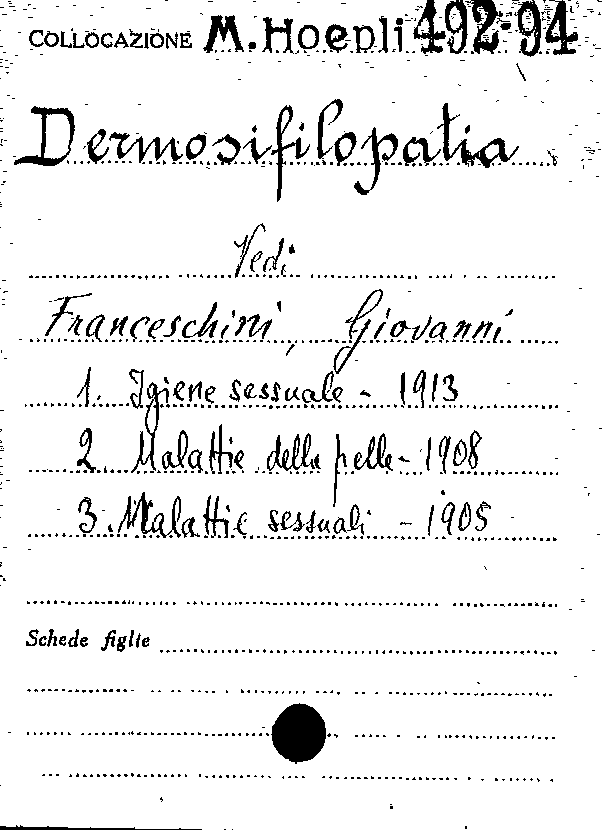 COLLOCAZIONE M. Hoepli 492-94
Dermosifilopatia
Vedi
Franceschini, Giovanni
1. Igiene sessuale - 1913
2 Malattie della pelle - 1908
3. Malattie sessuali - 1905
Schede figlie